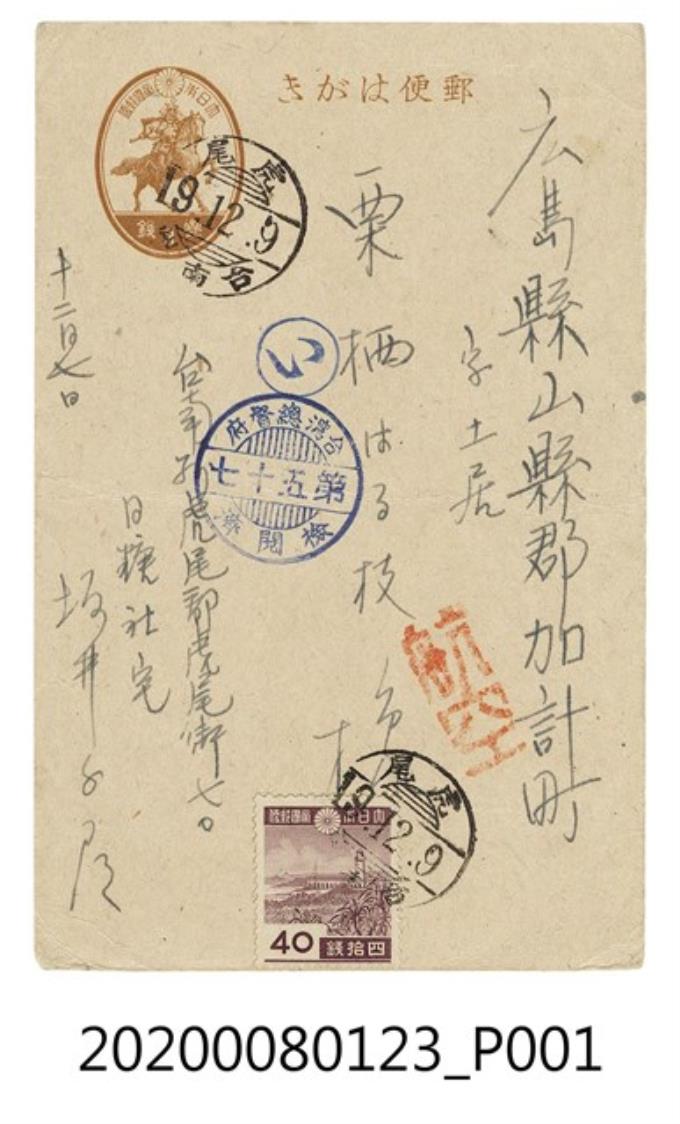 郵便はがき
広島縣山縣郡加計町
字土居
栗栖はる枝
様
航空
い
台灣總督府
第五十七
檢閱濟
台南州虎尾郡虎尾街七〇
日糖社宅
坂井
十二月七日
大日本帝國郵便
虎尾
19.12.9
台南
虎尾
19.12.9
台
大日本帝國郵便
40
四拾錢
20200080123_P001